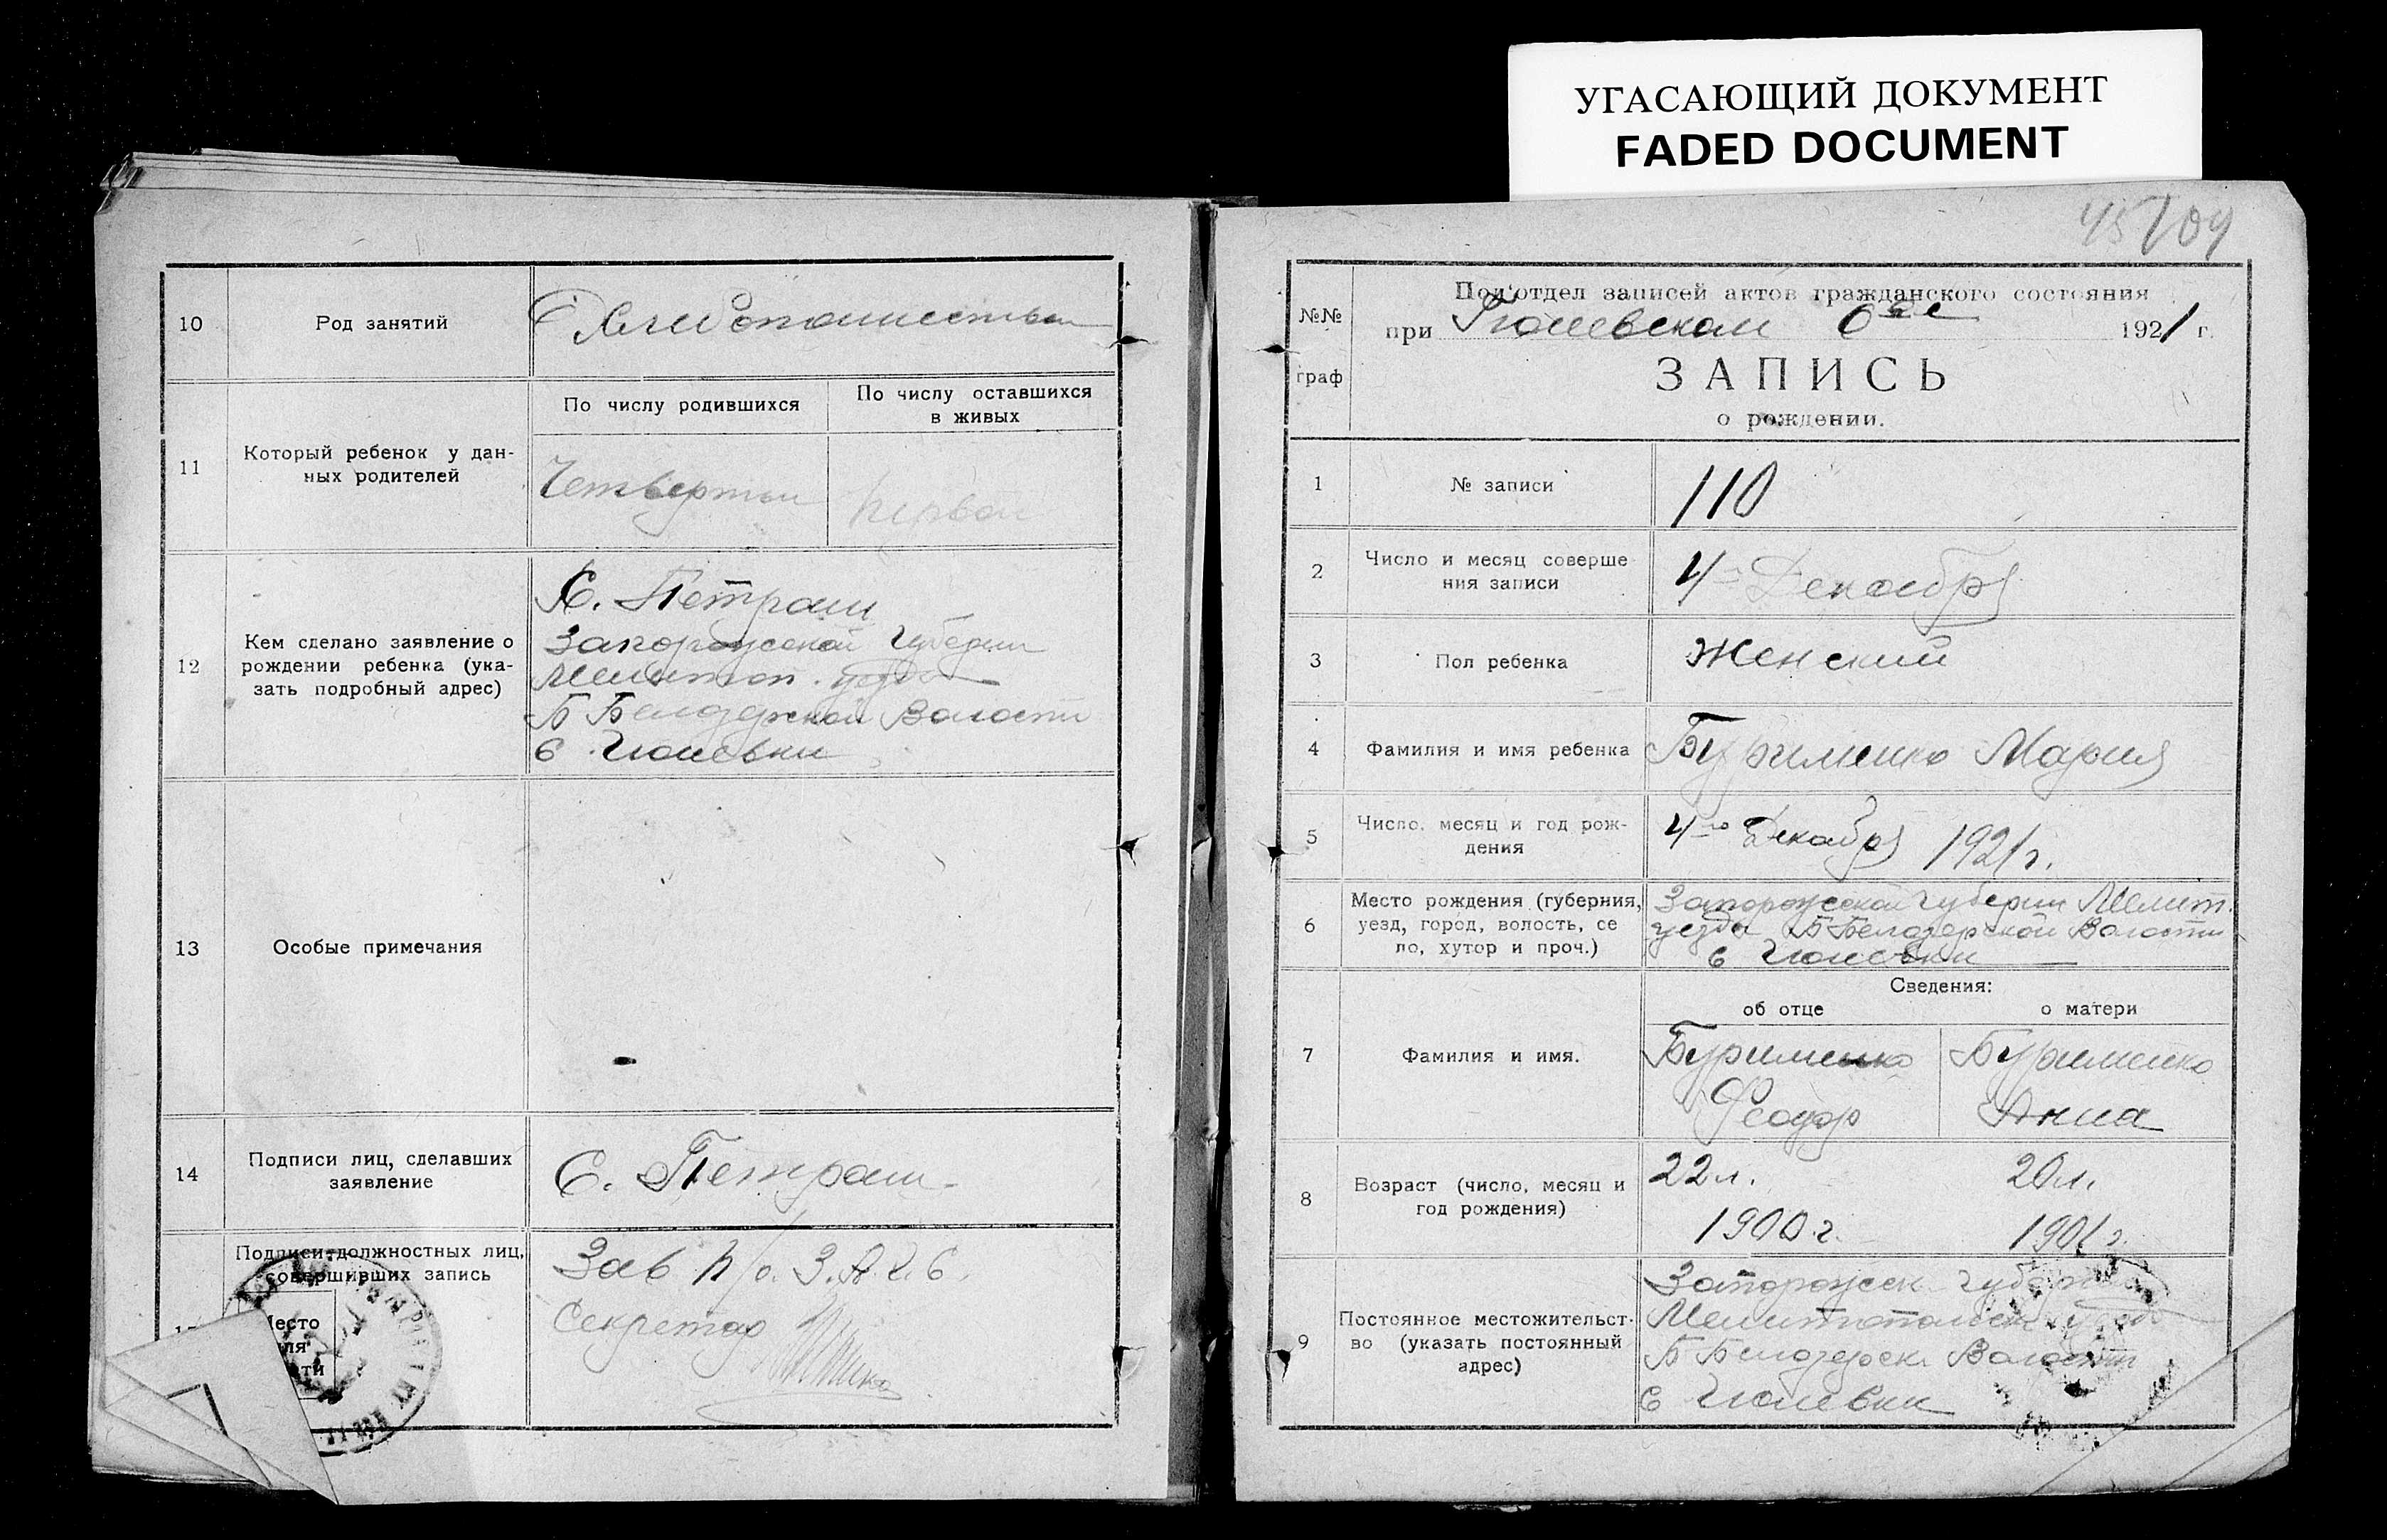 УГАСАЮЩИЙ ДОКУМЕНТ
FADED DOCUMENT
10
Род занятий
Хлебопашество
11
Который ребенок у дан-
ных родителей
По числу родившихся
По числу оставшихся
в живых
Четвертый
первый
12
Кем сделано заявление о
рождении ребенка (ука-
зать подробный адрес)
С. Петраш
Запорожской Губернии
Мелитоп. уезда
Б Белозерской Волости
с.
13
Особые примечания
14
Подписи лиц, сделавших
заявление
С. Петраш
Подписи должностных лиц,
совершивших запись
Место
для
Зав п/о. З.А.Г.С
Секретар
45
109
№№
граф
Под'отдел записей актов гражданского состояния
при 1921 г.
ЗАПИСЬ
о рождении.
1
№ записи
110
2
Число и месяц соверше
ния записи
4го Декабря
3
Пол ребенка
Женский
4
Фамилия и имя ребенка
Бурименко Мария
5
Число, месяц и год рож-
дения
4го Декабря 1921 г.
6
Место рождения (губерния,
уезд, город, волость, се
ло, хутор и проч.)
Запорожской Губернии Мелит.
уезда Б Белозерской Волости
с
Сведения:
об отце
о матери
7
Фамилия и имя.
Бурименко
Феодор
Бурименко
Анна
8
Возраст (число, месяц и
год рождения)
22 л.
1900 г.
20 л.
1901 г.
9
Постоянное местожительст-
во (указать постоянный
адрес)
Запорожск Губернии
Мелитопольск уезда
Б Белозерск. Волости
с